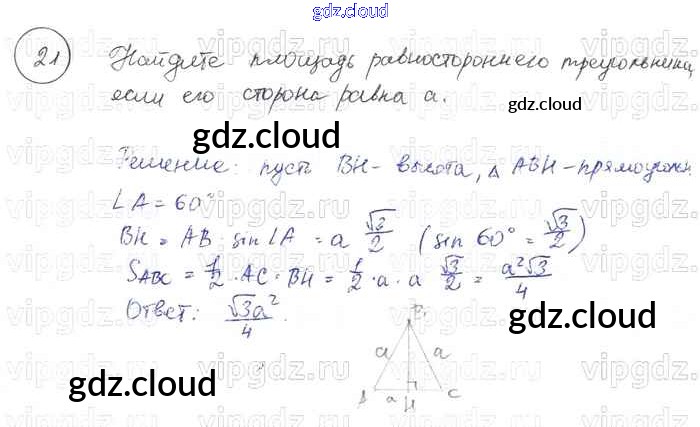 gdz.cloud
21 Найдите площадь равностороннего треугольника,
если его сторона равна a.
gdz.cloud
gdz.cloud
Решение: пусть BH - высота, △ ABH - прямоуголн
∠A = 60°
BH = AB · sin∠A = a √3/2 (sin 60° = √3/2)
S_ABC = 1/2 · AC · BH = 1/2 · a · a √3/2 = a²√3/4
Ответ: √3a²/4.
B
gdz.cloud
a a
gdz.cloud
A a H C
vipgdz.ru vipgdz.ru vipgdz.ru vipgdz.ru